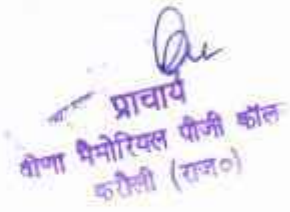 प्राचार्य
वीणा मैमोरियल पीजी कॉल
करौली (राज०)